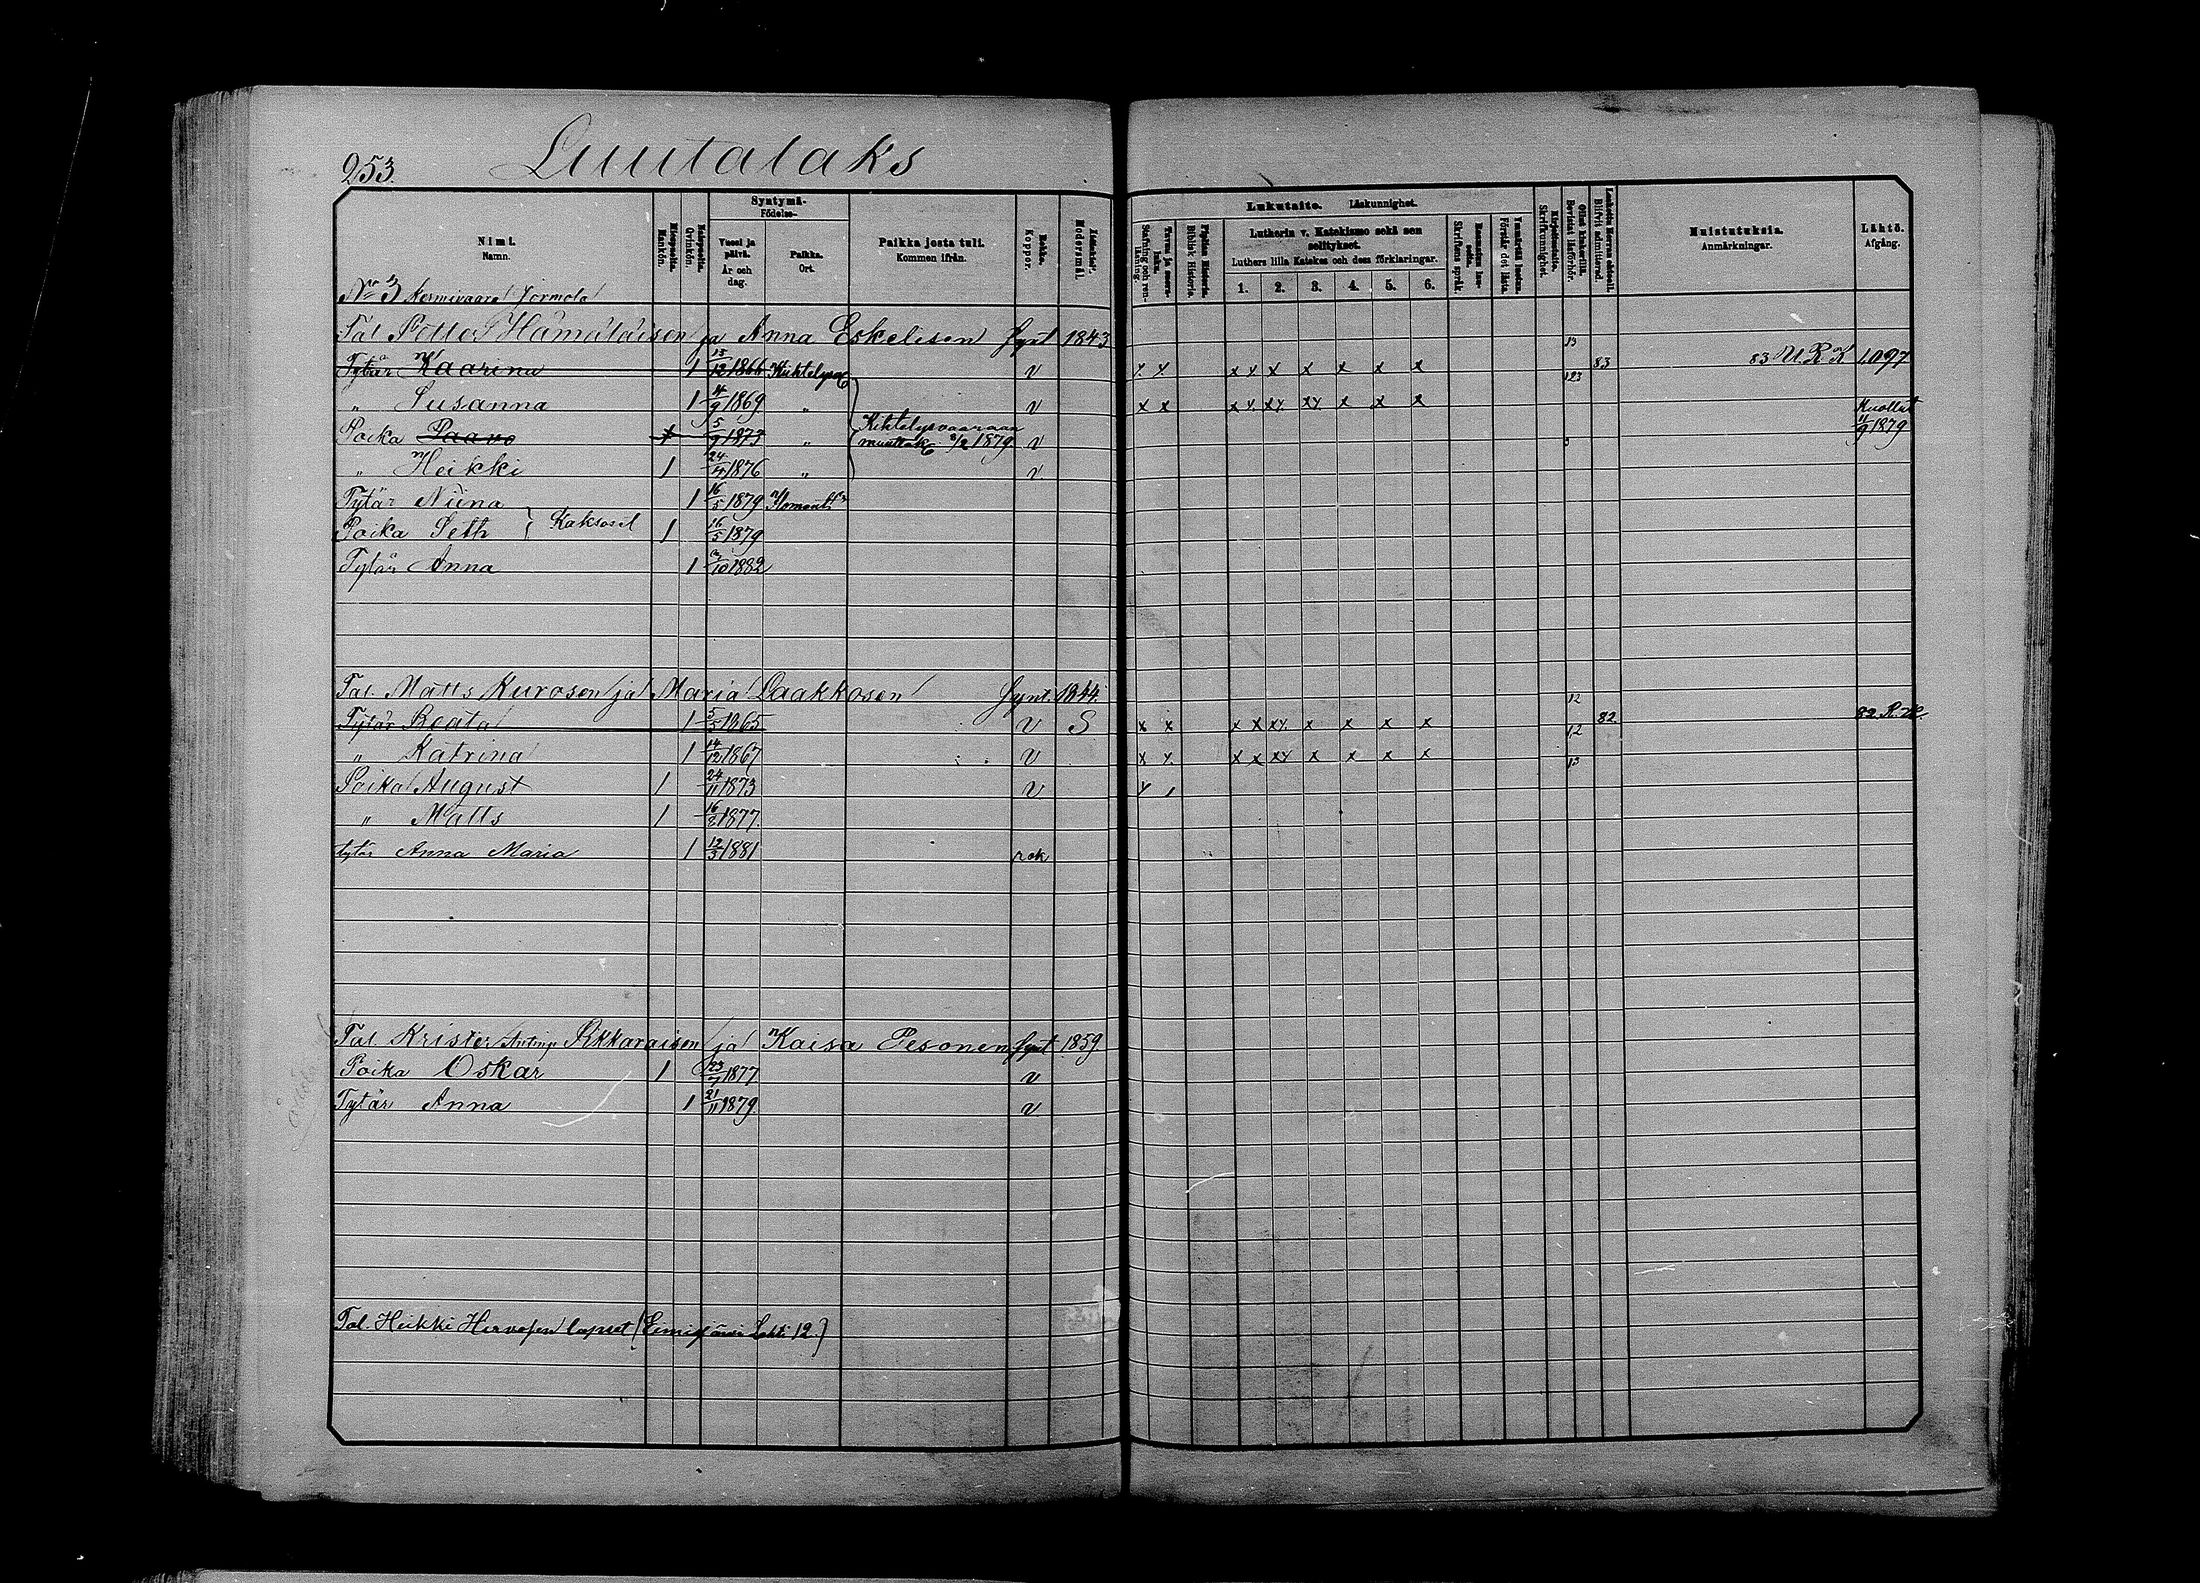 253. Luutalaks
Nimi. Namn.
Miespuolia. Mankön.
Vaimopuolia. Qvinkön.
Syntymä- Födelse-
Vuosi ja päivä. År och dag.
Paikka. Ort.
Paikka josta tuli. Kommen ifrån.
Rokko. Koppor.
Äidinkieli. Modersmål.
Lukutaito. Läskunnighet.
Lutherin v. Katekismo sekä sen selitykset.
Luthers lilla Katekes och dess förklaringar.
1. 2. 3. 4. 5. 6.
Muistutuksia. Anmärkningar.
Lähtö. Afgång.
No 3 Kermivaara Jormola
Tal Petter Hämäläisen ja Anna Eskelisen synt 1843 13
Tytär Kaarina 1 15/12 1866 Kiihtelysv v x x x x x x x x x 123 83 83 U.R.K 1097
„ Susanna 1 4/9 1869 „ v x x x x. xx. xx. x x x
Poika Paavo 1 5/9 1873 „ Kihtelysvaaraan muuttok 3/2 1879 v 3 Kuollut 11/9 1879
„ Heikki 1 24/4 1876 „ v
Tytär Niina 1 16/5 1879 Ilomants
Poika Seth } Kaksoset 1 16/5 1879
Tytär Anna 1 /10 1882
Tal. Matts Kurosen ja Maria Laakkosen synt. 1844. 12
Tytär Beata 1 5/5 1865 v S x x x x xx. x x x x 12 82 82 R.K.
„ Katrina 1 14/12 1867 v x x x x xx x x x x 13
Poika August 1 24/11 1873 v x
„ Matts 1 16/8 1877.
tytär Anna Maria 1 12/3 1881 rok
Tal Krister Ikkaraisen ja Kaisa Pesonen synt 1859
Poika Oskar 1 23/7 1877 v
Tytär Anna 1 21/11 1879 v
Tal. Heikki Hirvosen lapset (Eimisjärvi Lahti 12)